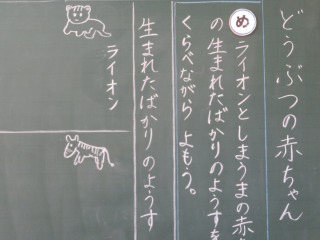 どうぶつの赤ちゃん
め
ライオンとしまうまの赤
の生まれたばかりのようすを
くらべながら よもう。
生まれたばかりのようす
ライオン